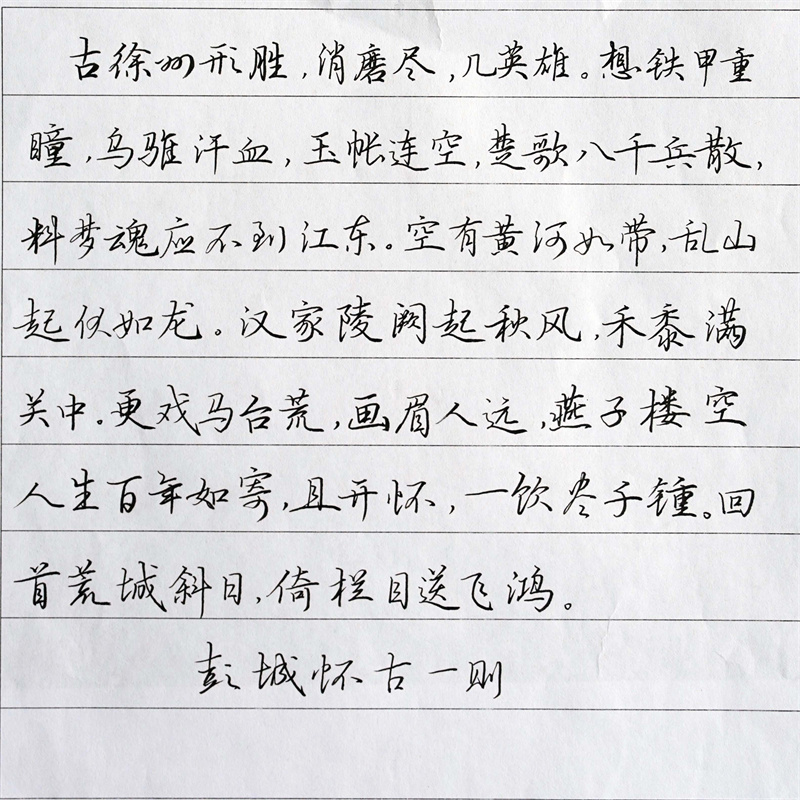 古徐州形胜,消磨尽,几英雄。想铁甲重
瞳,乌骓汗血,玉帐连空,楚歌八千兵散,
料梦魂应不到江东。空有黄河如带,乱山
起伏如龙。汉家陵阙起秋风,禾黍满
关中。更戏马台荒,画眉人远,燕子楼空
人生百年如寄,且开怀,一饮尽千锺。回
首荒城斜日,倚栏目送飞鸿。
彭城怀古一则